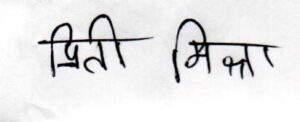 प्रिती मिश्रा